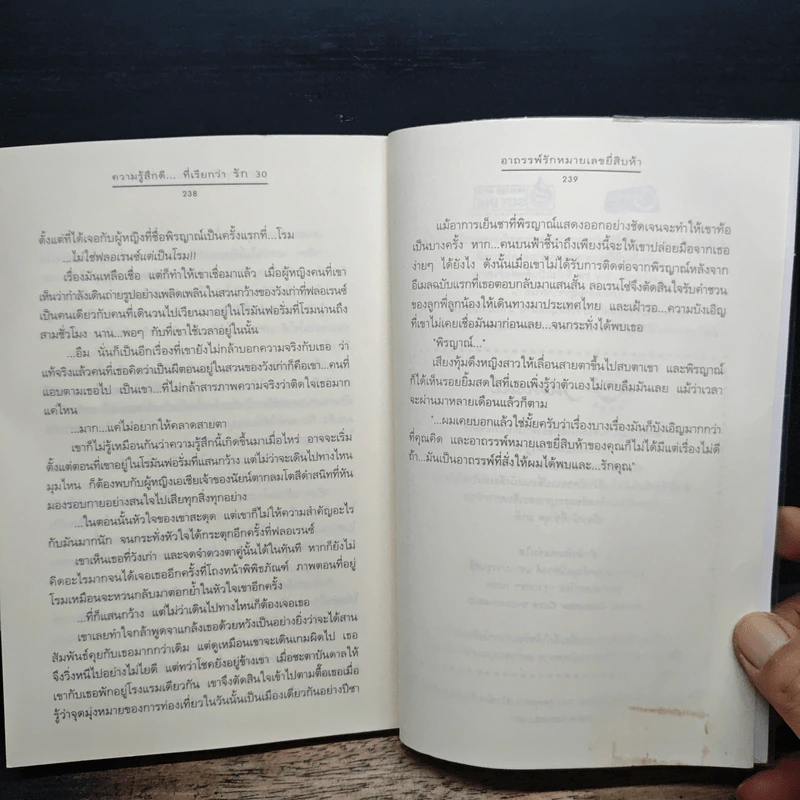 ความรู้สึกดี... ที่เรียกว่า รัก 30
238
ตั้งแต่ที่ได้เจอกับผู้หญิงที่ชื่อพิรญาณ์เป็นครั้งแรกที่...โรม
...ไม่ใช่ฟลอเรนซ์แต่เป็นโรม!!
เรื่องมันเหลือเชื่อ แต่ก็ทำให้เขาเชื่อมาแล้ว เมื่อผู้หญิงคนที่เขา
เห็นว่ากำลังเดินถ่ายรูปอย่างเพลิดเพลินในสวนกว้างของวังเก่าที่ฟลอเรนซ์
เป็นคนเดียวกับคนที่เดินวนไปเวียนมาอยู่ในโรมันฟอรั่มที่โรมนานถึง
สามชั่วโมง นาน...พอๆ กับที่เขาใช้เวลาอยู่ในนั้น
...อืม นั่นก็เป็นอีกเรื่องที่เขายังไม่กล้าบอกความจริงกับเธอ ว่า
แท้จริงแล้วคนที่เธอคิดว่าเป็นผีตอนอยู่ในสวนของวังเก่าก็คือเขา...คนที่
แอบตามเธอไป เป็นเขา...ที่ไม่กล้าสารภาพความจริงว่าติดใจเธอมาก
แค่ไหน
...มาก...แค่ไม่อยากให้คลาดสายตา
เขาก็ไม่รู้เหมือนกันว่าความรู้สึกนี้เกิดขึ้นมาเมื่อไหร่ อาจจะเริ่ม
ตั้งแต่ตอนที่เขาอยู่ในโรมันฟอรั่มที่แสนกว้าง แต่ไม่ว่าจะเดินไปทางไหน
มุมไหน ก็ต้องพบกับผู้หญิงเอเชียเจ้าของนัยน์ตากลมโตสีดำสนิทที่หัน
มองรอบกายอย่างสนใจไปเสียทุกสิ่งทุกอย่าง
...ในตอนนั้นหัวใจของเขาสะดุด แต่เขาก็ไม่ให้ความสำคัญอะไร
กับมันมากนัก จนกระทั่งหัวใจได้กระตุกอีกครั้งที่ฟลอเรนซ์
เขาเห็นเธอที่วังเก่า และจดจำดวงตาคู่นั้นได้ในทันที หากก็ยังไม่
คิดอะไรมากจนได้เจอเธออีกครั้งที่โถงหน้าพิพิธภัณฑ์ ภาพตอนที่อยู่
โรมเหมือนจะหวนกลับมาตอกย้ำในหัวใจเขาอีกครั้ง
...ที่ก็แสนกว้าง แต่ไม่ว่าเดินไปทางไหนก็ต้องเจอเธอ
เขาเลยทำใจกล้าพูดจาแกล้งเธอด้วยหวังเป็นอย่างยิ่งว่าจะได้สาน
สัมพันธ์คุยกับเธอมากกว่าเดิม แต่ดูเหมือนเขาจะเดินเกมผิดไป เธอ
จึงวิ่งหนีไปอย่างไม่ไยดี แต่ทว่าโชคยังอยู่ข้างเขา เมื่อชะตาบันดาลให้
เขากับเธอพักอยู่โรงแรมเดียวกัน เขาจึงตัดสินใจเข้าไปตามตื๊อเธอเมื่อ
รู้ว่าจุดมุ่งหมายของการท่องเที่ยวในวันนั้นเป็นเมืองเดียวกันอย่างปีซา
อาถรรพ์รักหมายเลขยี่สิบห้า
239
แม้อาการเย็นชาที่พิรญาณ์แสดงออกอย่างชัดเจนจะทำให้เขาท้อ
เป็นบางครั้ง หาก...คนบนฟ้าชี้นำถึงเพียงนี้จะให้เขาปล่อยมือจากเธอ
ง่ายๆ ได้ยังไง ดังนั้นเมื่อเขาไม่ได้รับการติดต่อจากพิรญาณ์หลังจาก
อีเมลฉบับแรกที่เธอตอบกลับมาแสนสั้น ลอเรนโซ่จึงตัดสินใจรับคำชวน
ของลูกพี่ลูกน้องให้เดินทางมาประเทศไทย และเฝ้ารอ...ความบังเอิญ
ที่เขาไม่เคยเชื่อมันมาก่อนเลย...จนกระทั่งได้พบเธอ
"พิรญาณ์..."
เสียงทุ้มดึงหญิงสาวให้เลื่อนสายตาขึ้นไปสบตาเขา และพิรญาณ์
ก็ได้เห็นรอยยิ้มสดใสที่เธอเพิ่งรู้ว่าตัวเองไม่เคยลืมมันเลย แม้ว่าเวลา
จะผ่านมาหลายเดือนแล้วก็ตาม
"...ผมเคยบอกแล้วใช่มั้ยครับว่าเรื่องบางเรื่องมันก็บังเอิญมากกว่า
ที่คุณคิด และอาถรรพ์หมายเลขยี่สิบห้าของคุณก็ไม่ได้มีแต่เรื่องไม่ดี
ถ้า...มันเป็นอาถรรพ์ที่สั่งให้ผมได้พบและ...รักคุณ"